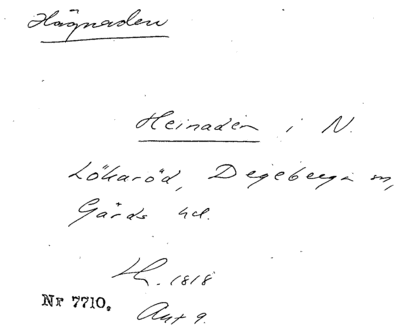 Hägnaden
Heinaden i N.
Lökaröd, Degeberga sn,
Gärds hd.
Lh. 1818
Nr 7710,
Akt 9.